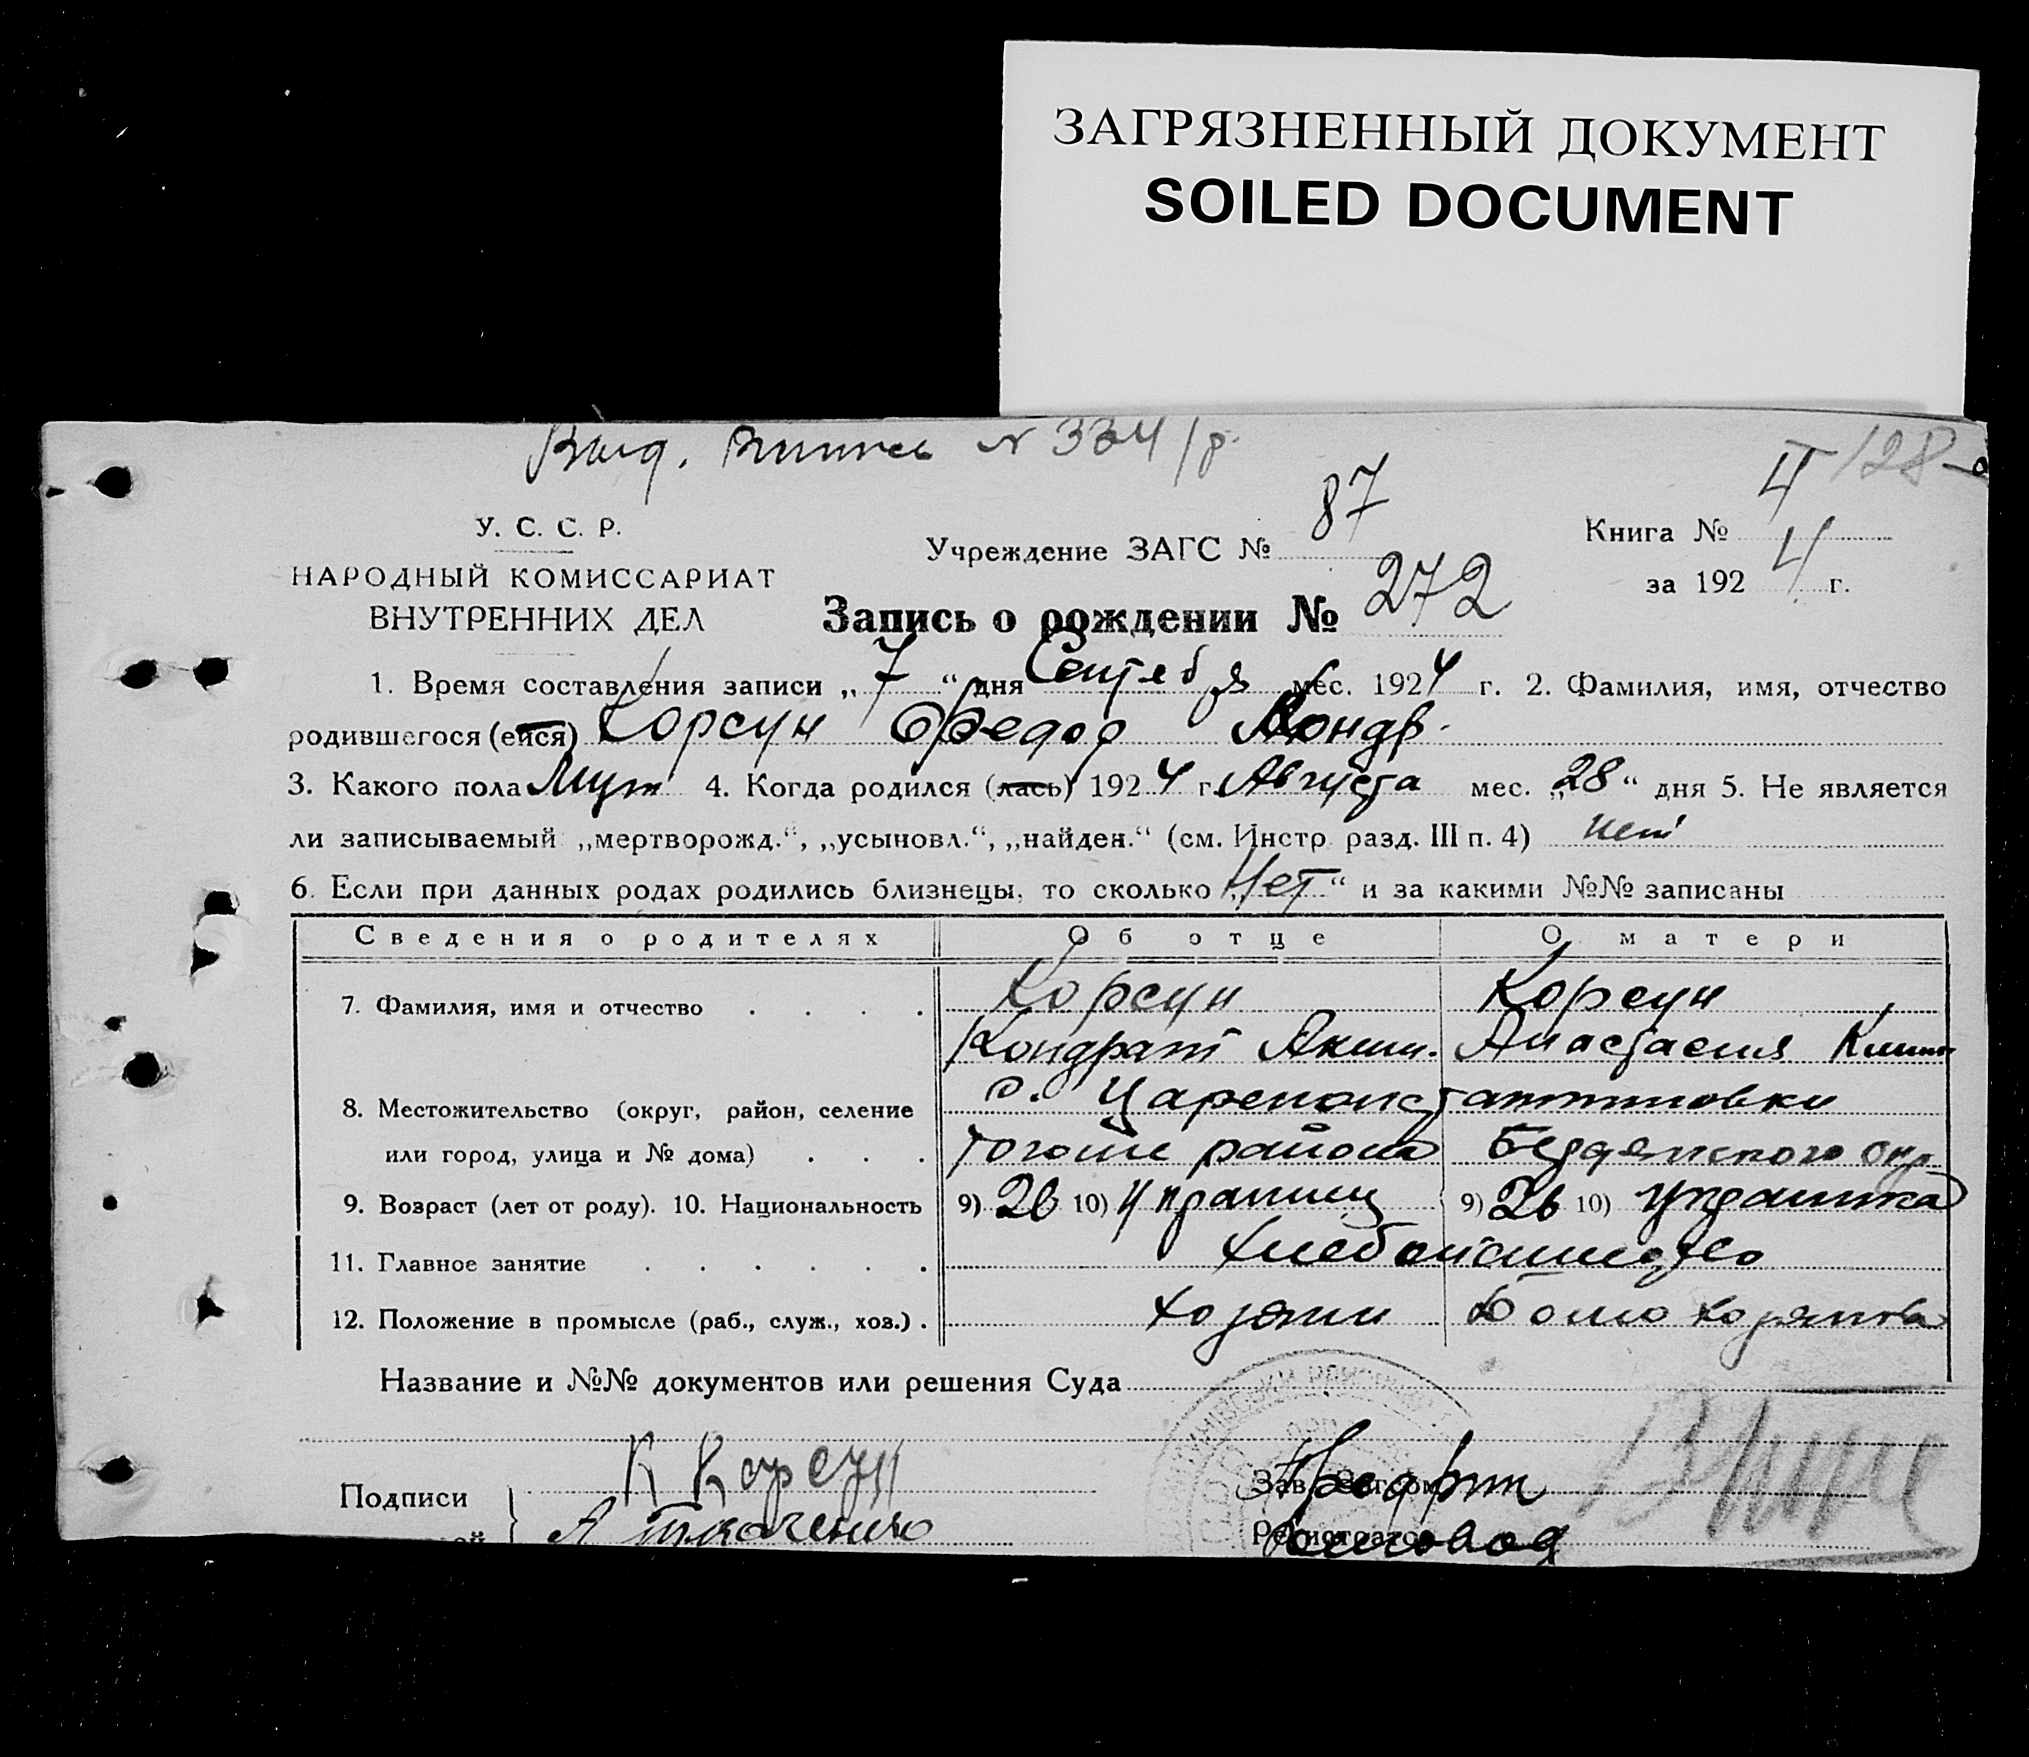 ЗАГРЯЗНЕННЫЙ ДОКУМЕНТ
SOILED DOCUMENT
№ 334/
128
У. С. С. Р.
НАРОДНЫЙ КОМИССАРИАТ
ВНУТРЕННИХ ДЕЛ
Учреждение ЗАГС № 87
Книга №
за 1924 г.
Запись о рождении № 272
1. Время составления записи „7“ дня Сентября мес. 1924 г. 2. Фамилия, имя, отчество
родившегося (ейся) Корсун Федор Кондр.
3. Какого пола Муж 4. Когда родился (лась) 1924 г. Августа мес. „28“ дня 5. Не является
ли записываемый „мертворожд.“, „усыновл.“, „найден.“ (см. Инстр. разд. III п. 4) нет
6. Если при данных родах родились близнецы, то сколько „Нет“ и за какими №№ записаны
Сведения о родителях Об отце О матери
7. Фамилия, имя и отчество . . . . Корсун Корсун
Кондрат Аким. Анастасия
8. Местожительство (округ, район, селение с. Цареконстантиновки
или город, улица и № дома) . . . района Бердянского окр
9. Возраст (лет от роду). 10. Национальность 9) 26 10) Украинец 9) 26 10) Украинка
11. Главное занятие . . . . . . Хлебопашество
12. Положение в промысле (раб., служ., хоз.) . хозяин хозяйка
Название и №№ документов или решения Суда
Подписи К Корсун Зав. Загсом
А Ткаченко Регистратор